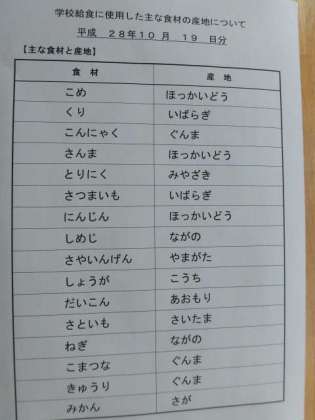 学校給食に使用した主な食材の産地について
平成 28年10 月 19 日分
【主な食材と産地】
食 材 産 地
こめ ほっかいどう
くり いばらぎ
こんにゃく ぐんま
さんま ほっかいどう
とりにく みやざき
さつまいも いばらぎ
にんじん ほっかいどう
しめじ ながの
さやいんげん やまがた
しょうが こうち
だいこん あおもり
さといも さいたま
ねぎ ながの
こまつな ぐんま
きゅうり ぐんま
みかん さが